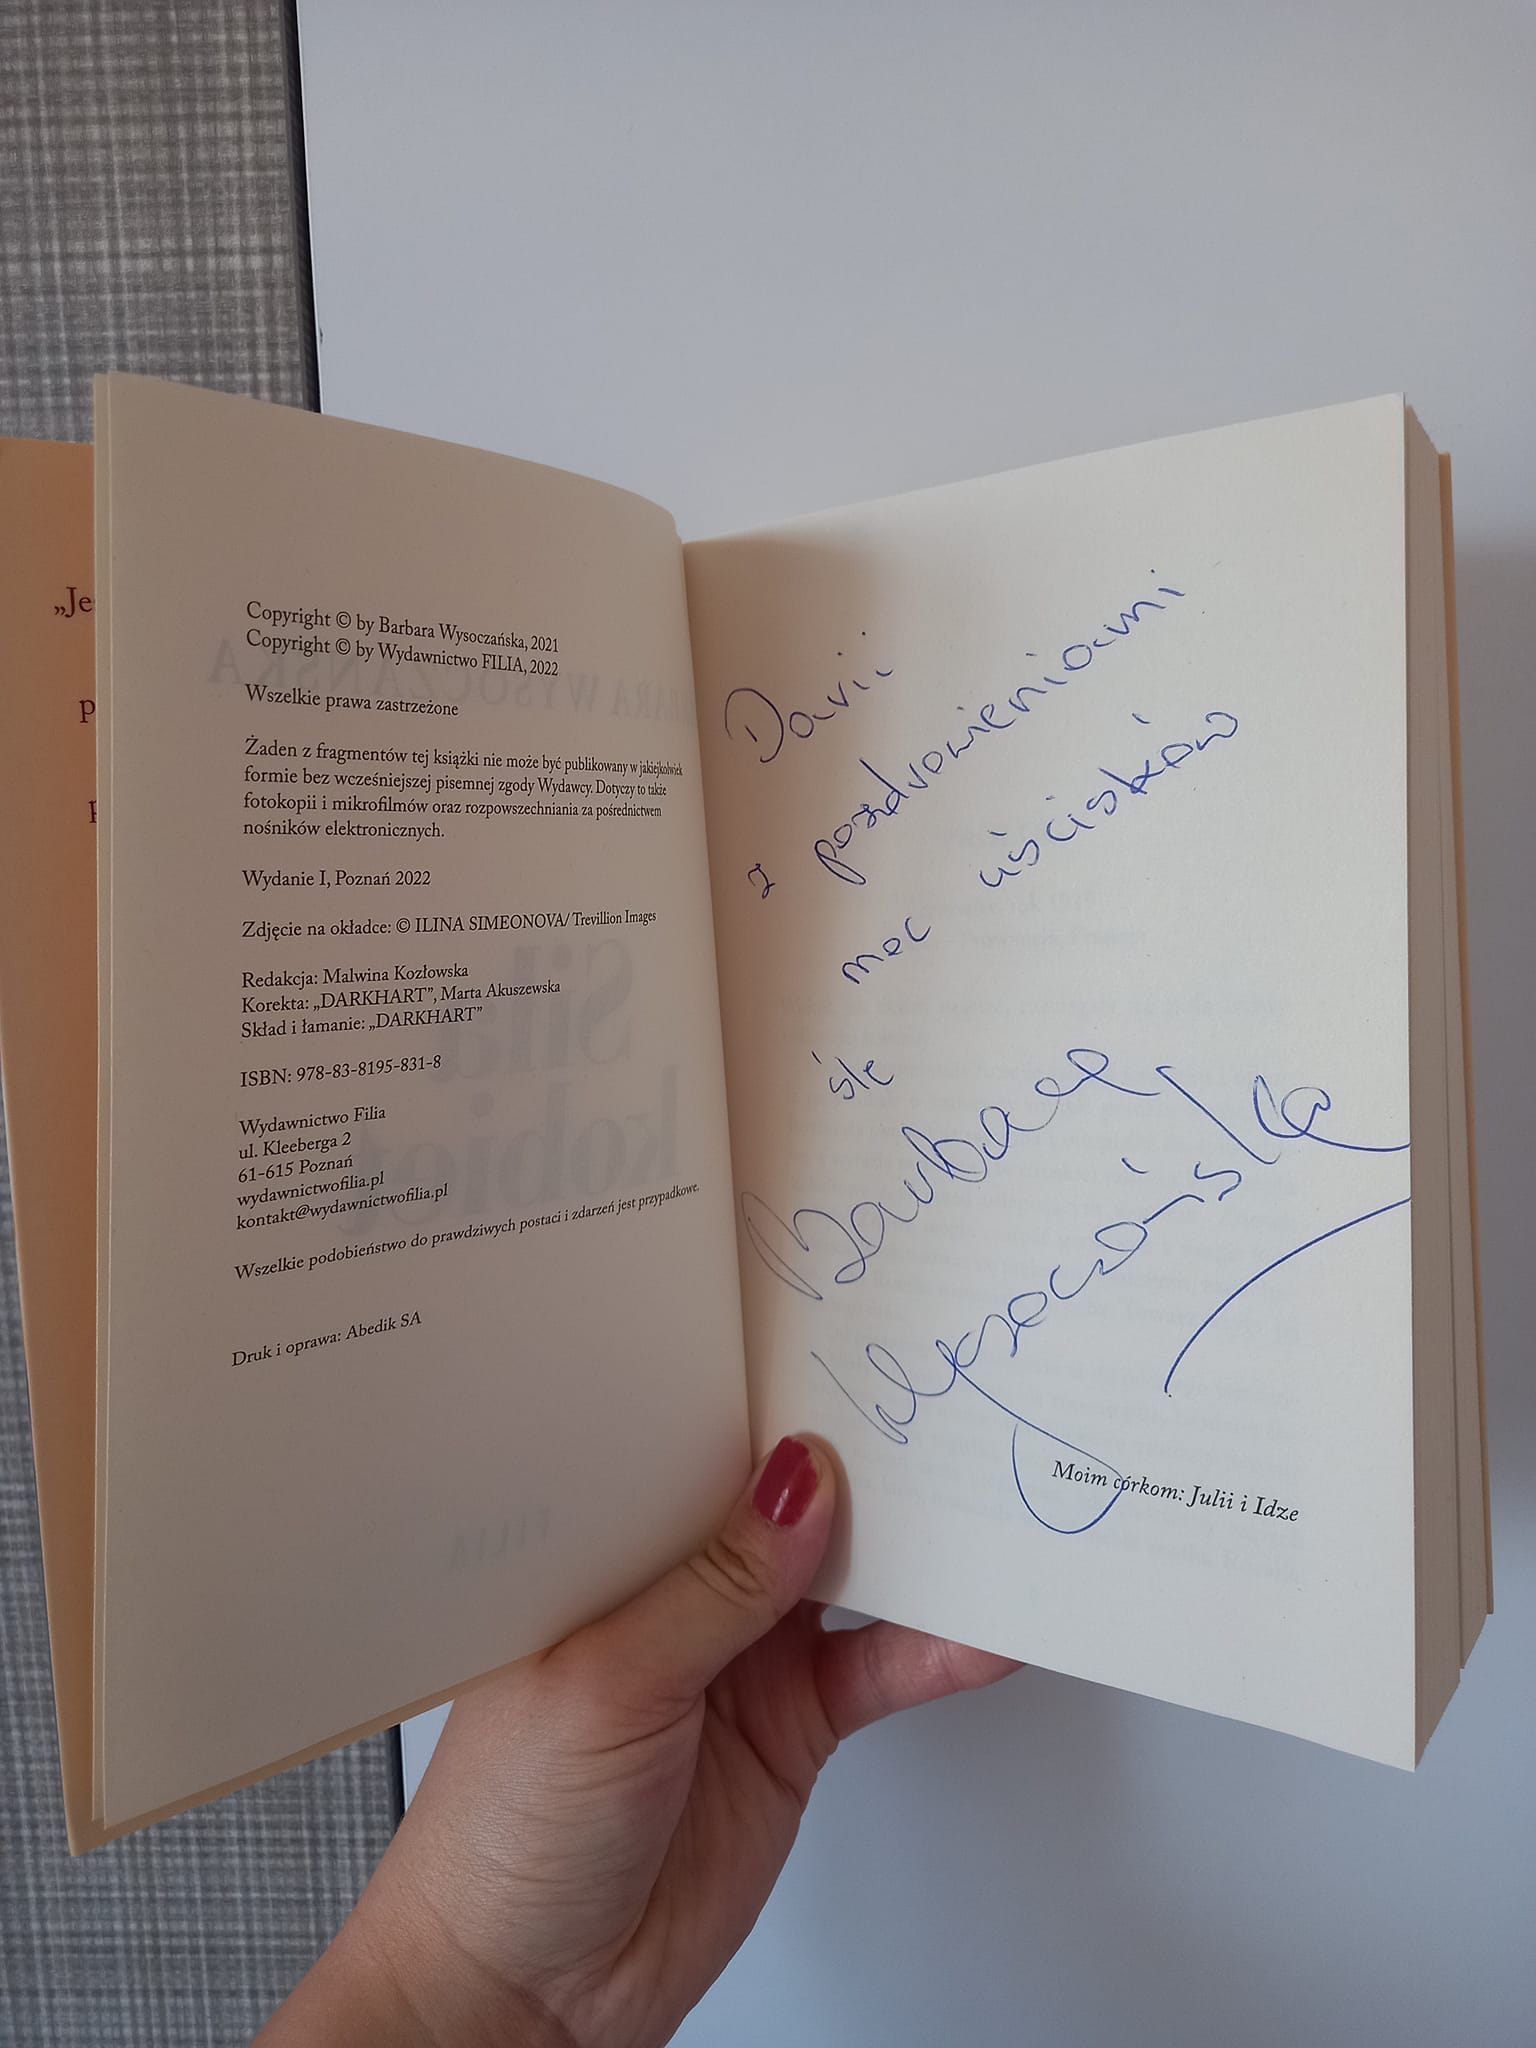 „Je
p
p
Copyright © by Barbara Wysoczańska, 2021
Copyright © by Wydawnictwo FILIA, 2022
Wszelkie prawa zastrzeżone
Żaden z fragmentów tej książki nie może być publikowany w jakiejkolwiek
formie bez wcześniejszej pisemnej zgody Wydawcy. Dotyczy to także
fotokopii i mikrofilmów oraz rozpowszechniania za pośrednictwem
nośników elektronicznych.
Wydanie I, Poznań 2022
Zdjęcie na okładce: © ILINA SIMEONOVA/ Trevillion Images
Redakcja: Malwina Kozłowska
Korekta: „DARKHART”, Marta Akuszewska
Skład i łamanie: „DARKHART”
ISBN: 978-83-8195-831-8
Wydawnictwo Filia
ul. Kleeberga 2
61-615 Poznań
wydawnictwofilia.pl
kontakt@wydawnictwofilia.pl
Wszelkie podobieństwo do prawdziwych postaci i zdarzeń jest przypadkowe.
Druk i oprawa: Abedik SA
Darii
z pozdrowieniami
moc uścisków
ślę
Barbara
Wysoczańska
Moim córkom: Julii i Idze